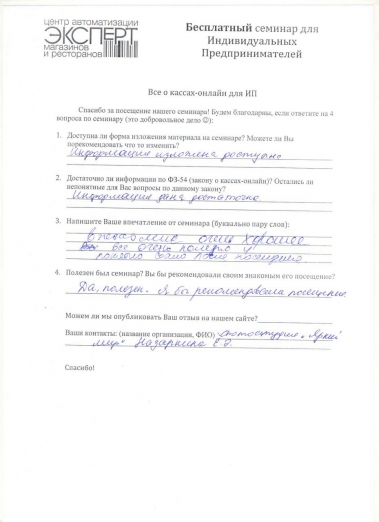 центр автоматизации
ЭКСПЕРТ
магазинов
и ресторанов
Бесплатный семинар для
Индивидуальных
Предпринимателей
Все о кассах-онлайн для ИП
Спасибо за посещение нашего семинара! Будем благодарны, если ответите на 4
вопроса по семинару (это добровольное дело ☺):
1. Доступна ли форма изложения материала на семинаре? Можете ли Вы
порекомендовать что то изменить?
Информация изложена доступно
2. Достаточно ли информации по ФЗ-54 (закону о кассах-онлайн)? Остались ли
непонятные для Вас вопросы по данному закону?
Информации дана достаточно
3. Напишите Ваше впечатление от семинара (буквально пару слов):
впечатление очень хорошее
все очень понятно и
после посещения
4. Полезен был семинар? Вы бы рекомендовали своим знакомым его посещение?
Да, полезен. Я бы рекомендовала посещение
Можем ли мы опубликовать Ваш отзыв на нашем сайте?
Ваши контакты: (название организации, ФИО) Фотостудия "Яркий
мир" Назаркина Е.
Спасибо!